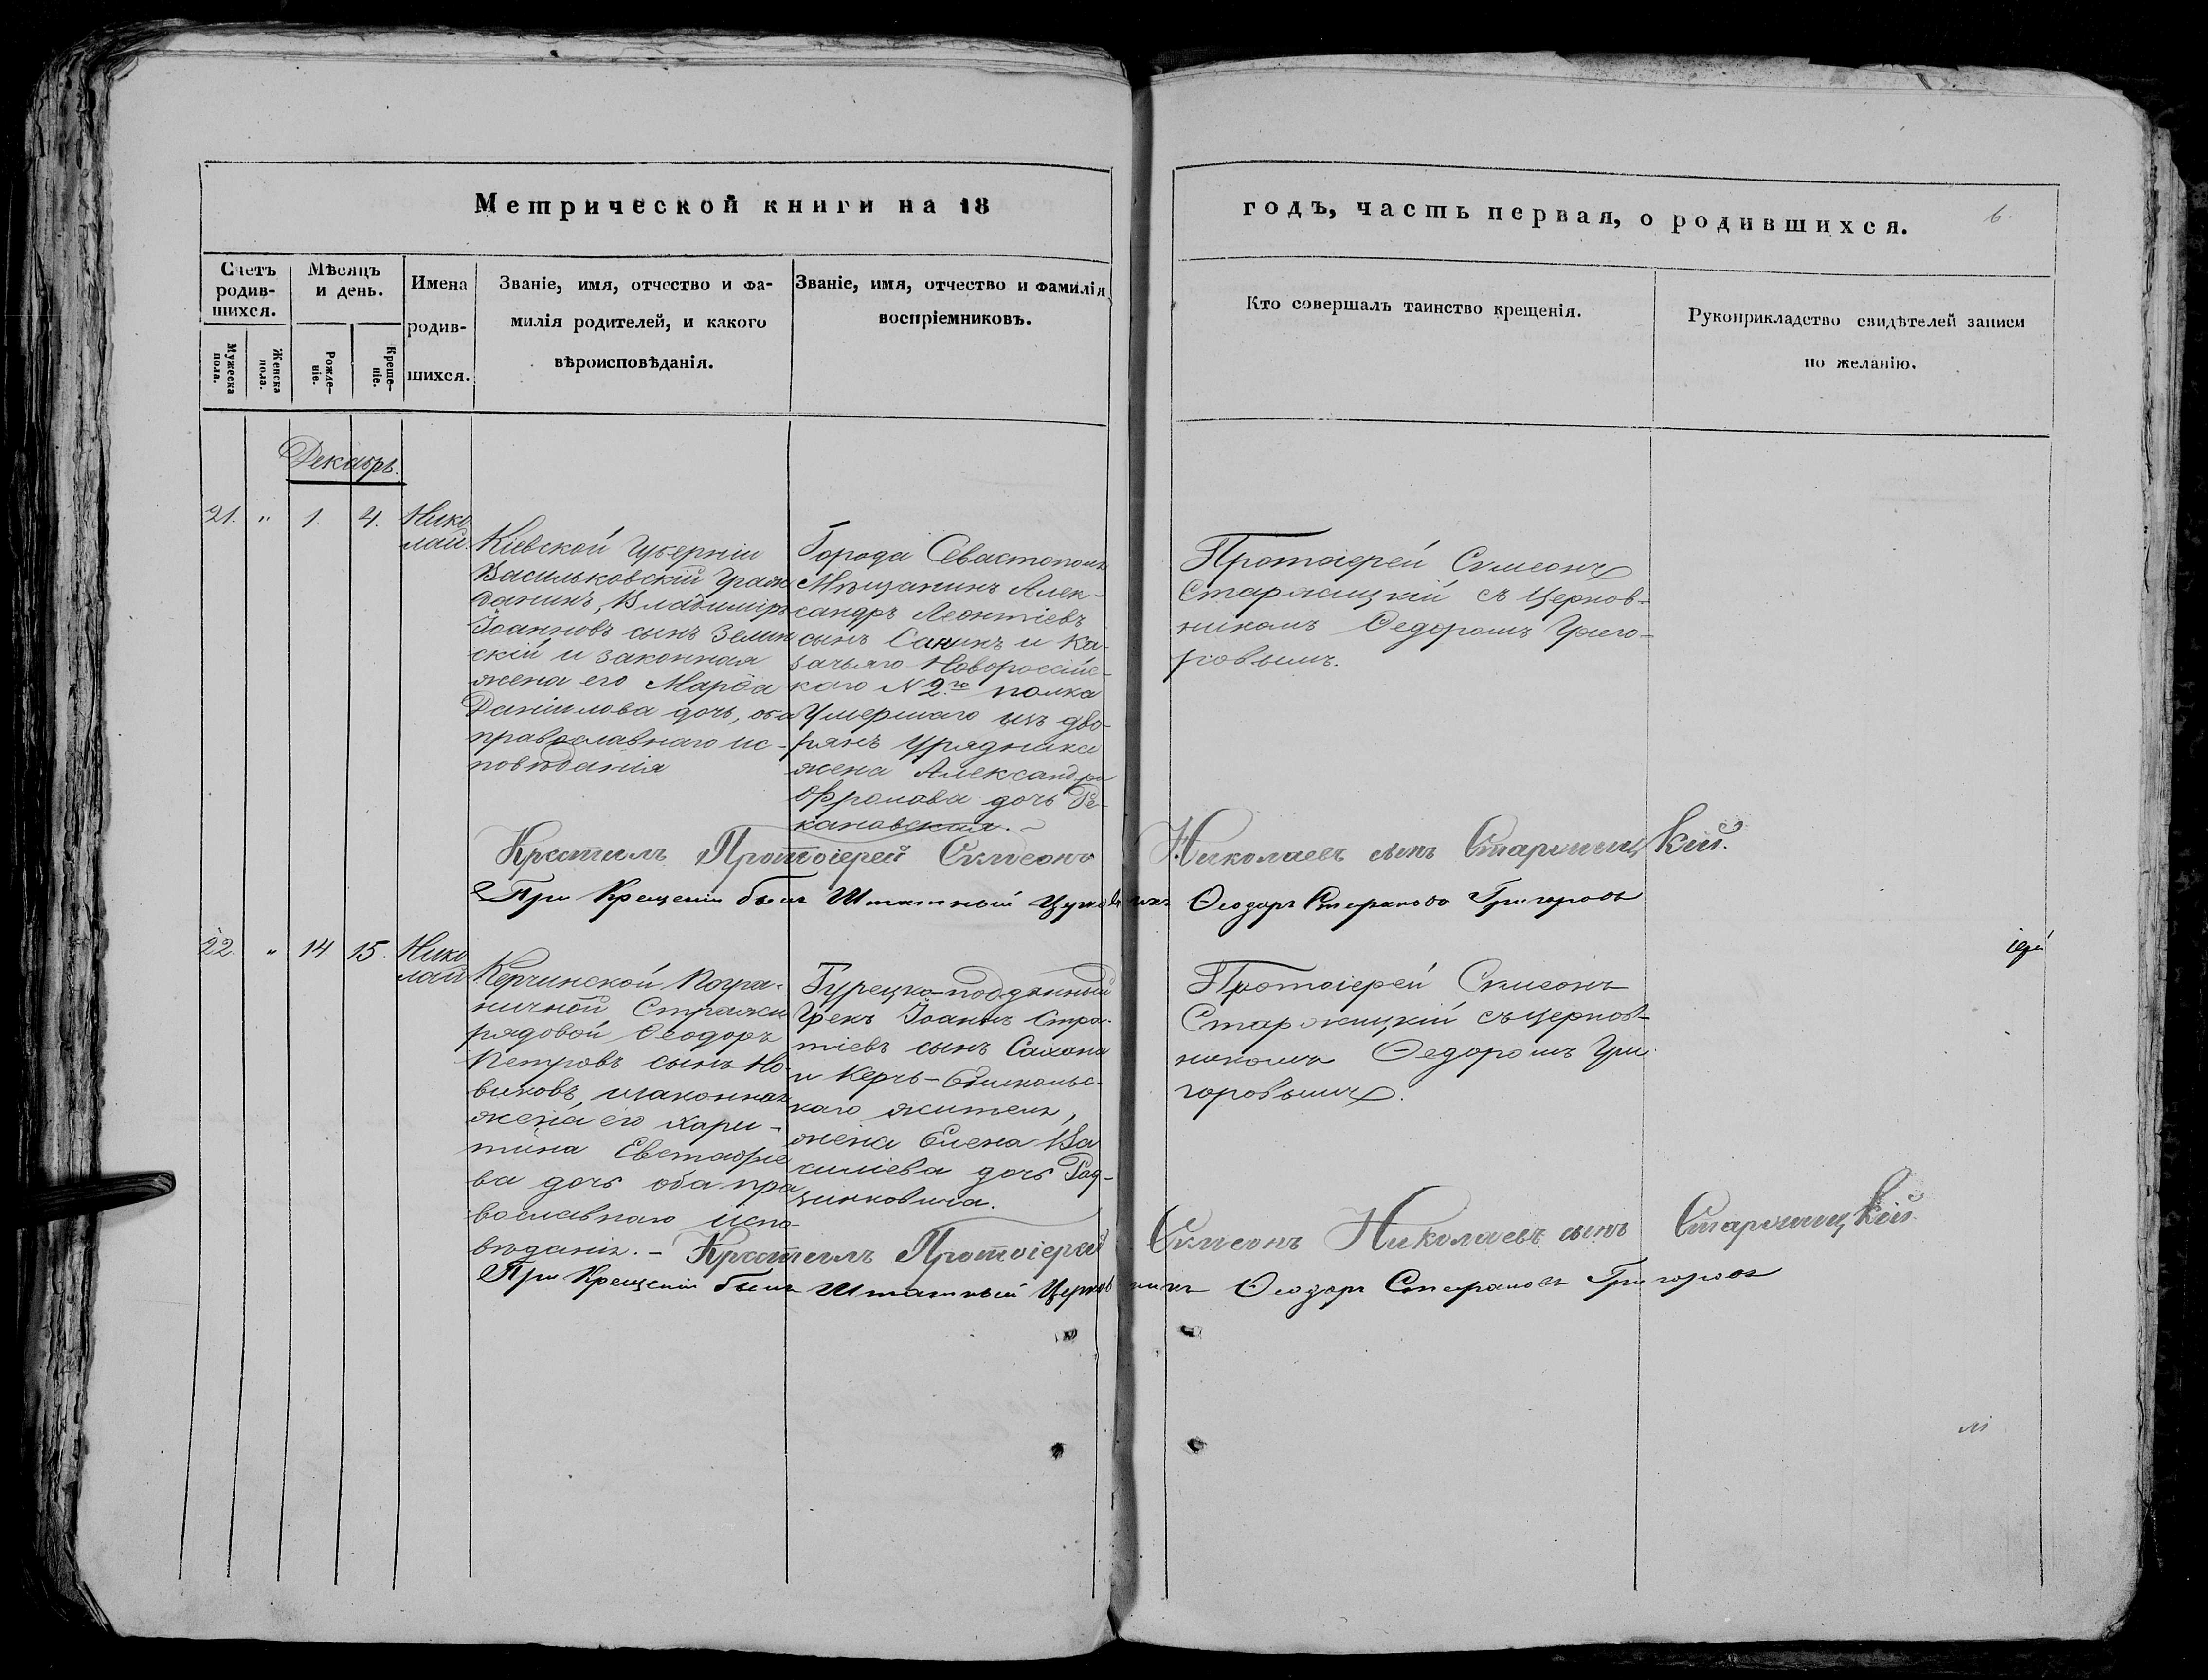 Метрической книги на 18
годъ, часть первая, о родившихся.
6.
Счетъ родив-
шихся.
Мужеска пола.
Женска пола.
Мѣсяцъ
и день.
Рожде-
ніе.
Креще-
ніе.
Имена
родив-
шихся.
Званіе, имя, отчество и фа-
милія родителей, и какого
вѣроисповѣданія.
Званіе, имя, отчество и фамилія
воспріемниковъ.
Кто совершалъ таинство крещенія.
Рукоприкладство свидѣтелей записи
по желанію.
Декабрь.
21. " 1. 4.
Нико
лай.
Кіевской Губерніи
Васильковскій Граж
данинъ, Владиміръ
Іоанновъ сынъ Зелин
скій и законная
жена его Марѳа
Даніилова дочь, оба
православнаго ис-
повѣданія
Города Севастополя
Мѣщанинъ Алек-
сандръ Леонтіевъ
сынъ Санинъ и Ка-
зачьяго Новороссійс-
каго N 2го полка
Умершаго изъ дво-
рянъ Урядника
жена Александра
дочь
кановская.
Протоіерей Симеонъ
Старжицкій съ Церков-
никомъ Ѳедоромъ Григо-
ровымъ.
Крестилъ Протоіерей Симеонъ Николаевъ сынъ Старжицкій.
При Крещеніи былъ Штатный Церковникъ Ѳеодоръ Стефановъ Григоровъ
22. " 14 15.
Нико
лай
Керчинской Погра-
ничной Стражи
рядовой Ѳеодоръ
Петровъ сынъ Но-
виковъ, изаконная
жена его Хари-
тина Евстафіе
ва дочь оба пра
вославнаго испо-
вѣданія. –
Турецко-подданный
Грекъ Іоаннъ Стра-
тіевъ сынъ Сахона
и Керчь-Еникольс-
каго жителя,
жена Елена Ва
силіева дочь Рад-
зинковича.
Протоіерей Симеонъ
Старжицкій съ церков-
никомъ Ѳедоромъ Гри-
горовымъ.
Крестилъ Протоіерей Симеонъ Николаевъ сынъ Старжицкій
При Крещеніи былъ Штатный Церковникъ Ѳеодоръ Стефановъ Григоровъ
іерей